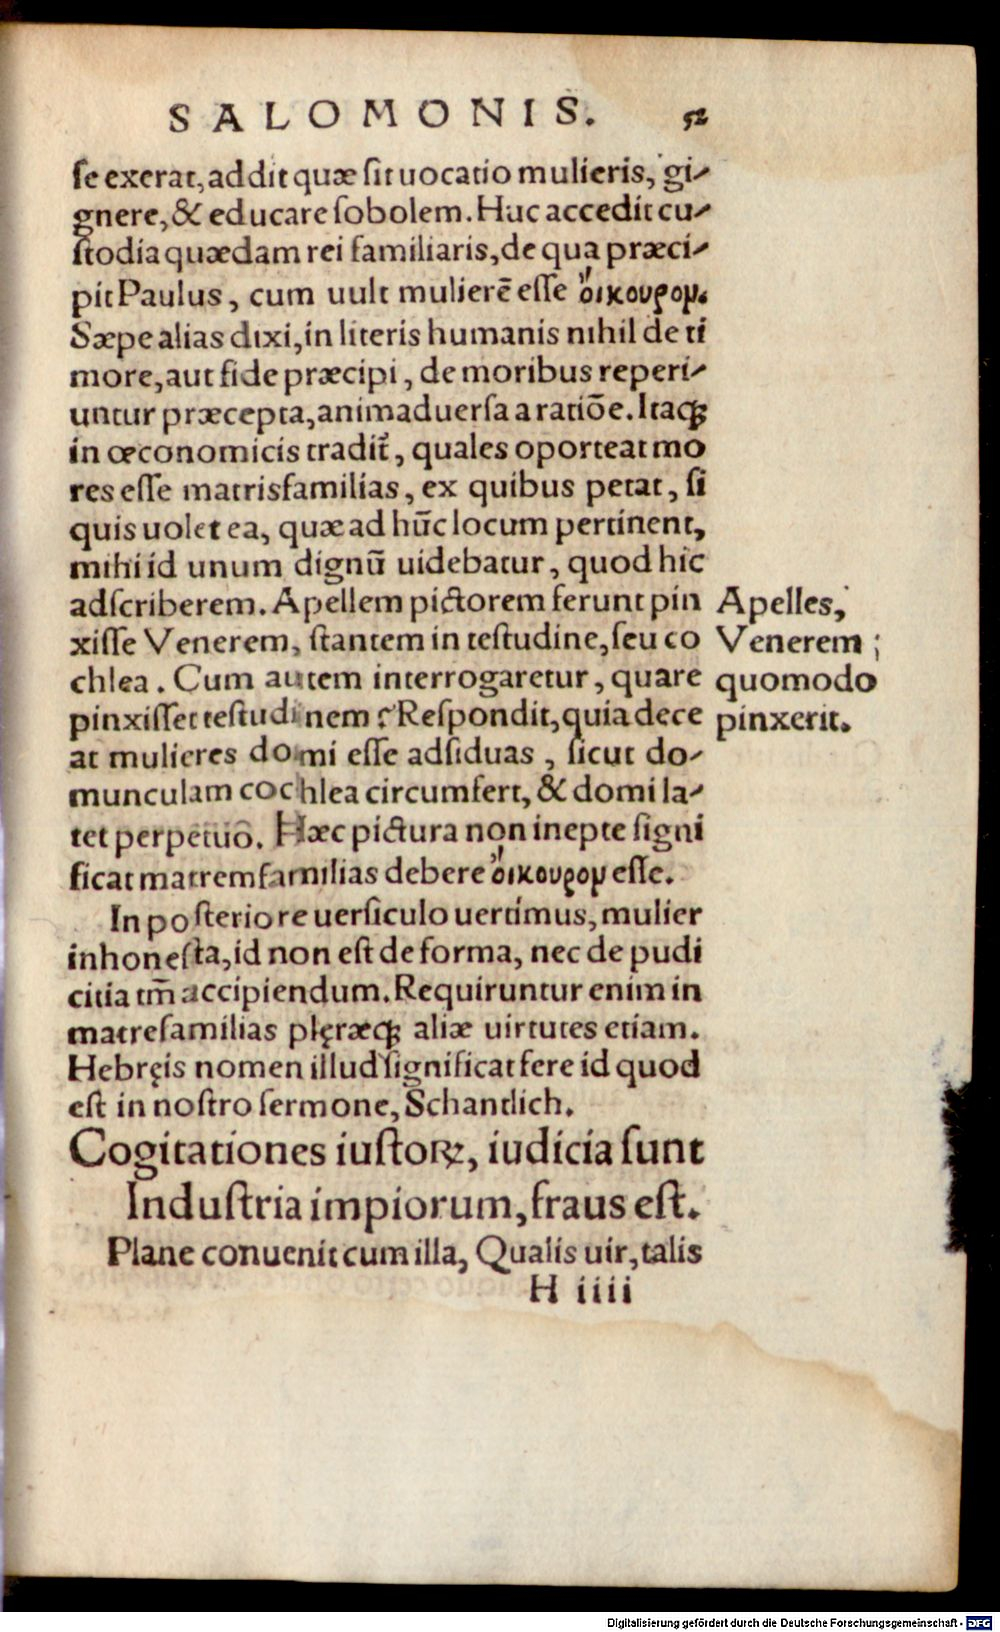 SALOMONIS. 52
se exerat, addit quæ sit uocatio mulieris, gi-
gnere, & educare sobolem. Huc accedit cu-
stodia quædam rei familiaris, de qua præci-
pit Paulus, cum uult mulierẽ esse ὄικουρομ.
Sæpe alias dixi, in literis humanis nihil de ti
more, aut fide præcipi, de moribus reperi-
untur præcepta, animaduersa a ratiõe. Itaqꝫ
in œconomicis tradit̃, quales oporteat mo
res esse matrisfamilias, ex quibus petat, si
quis uolet ea, quæ ad hũc locum pertinent,
mihi id unum dignũ uidebatur, quod hic
adscriberem. Apellem pictorem ferunt pin
xisse Venerem, stantem in testudine, seu co
chlea. Cum autem interrogaretur, quare
pinxisset testudinem? Respondit, quia dece
at mulieres domi esse adsiduas, sicut do-
munculam cochlea circumfert, & domi la-
tet perpetuo. Hæc pictura non inepte signi
ficat matremfamilias debere ὄικουρομ esse.
In posteriore uersiculo uertimus, mulier
inhonesta, id non est de forma, nec de pudi
citia tm̃ accipiendum. Requiruntur enim in
matrefamilias plęræqꝫ aliæ uirtutes etiam.
Hebręis nomen illud significat fere id quod
est in nostro sermone, Schantlich.
Cogitationes iustoꝝ, iudicia sunt
Industria impiorum, fraus est.
Plane conuenit cum illa, Qualis uir, talis
H iiii
Apelles,
Venerem
quomodo
pinxerit.
Digitalisierung gefördert durch die Deutsche Forschungsgemeinschaft - DFG